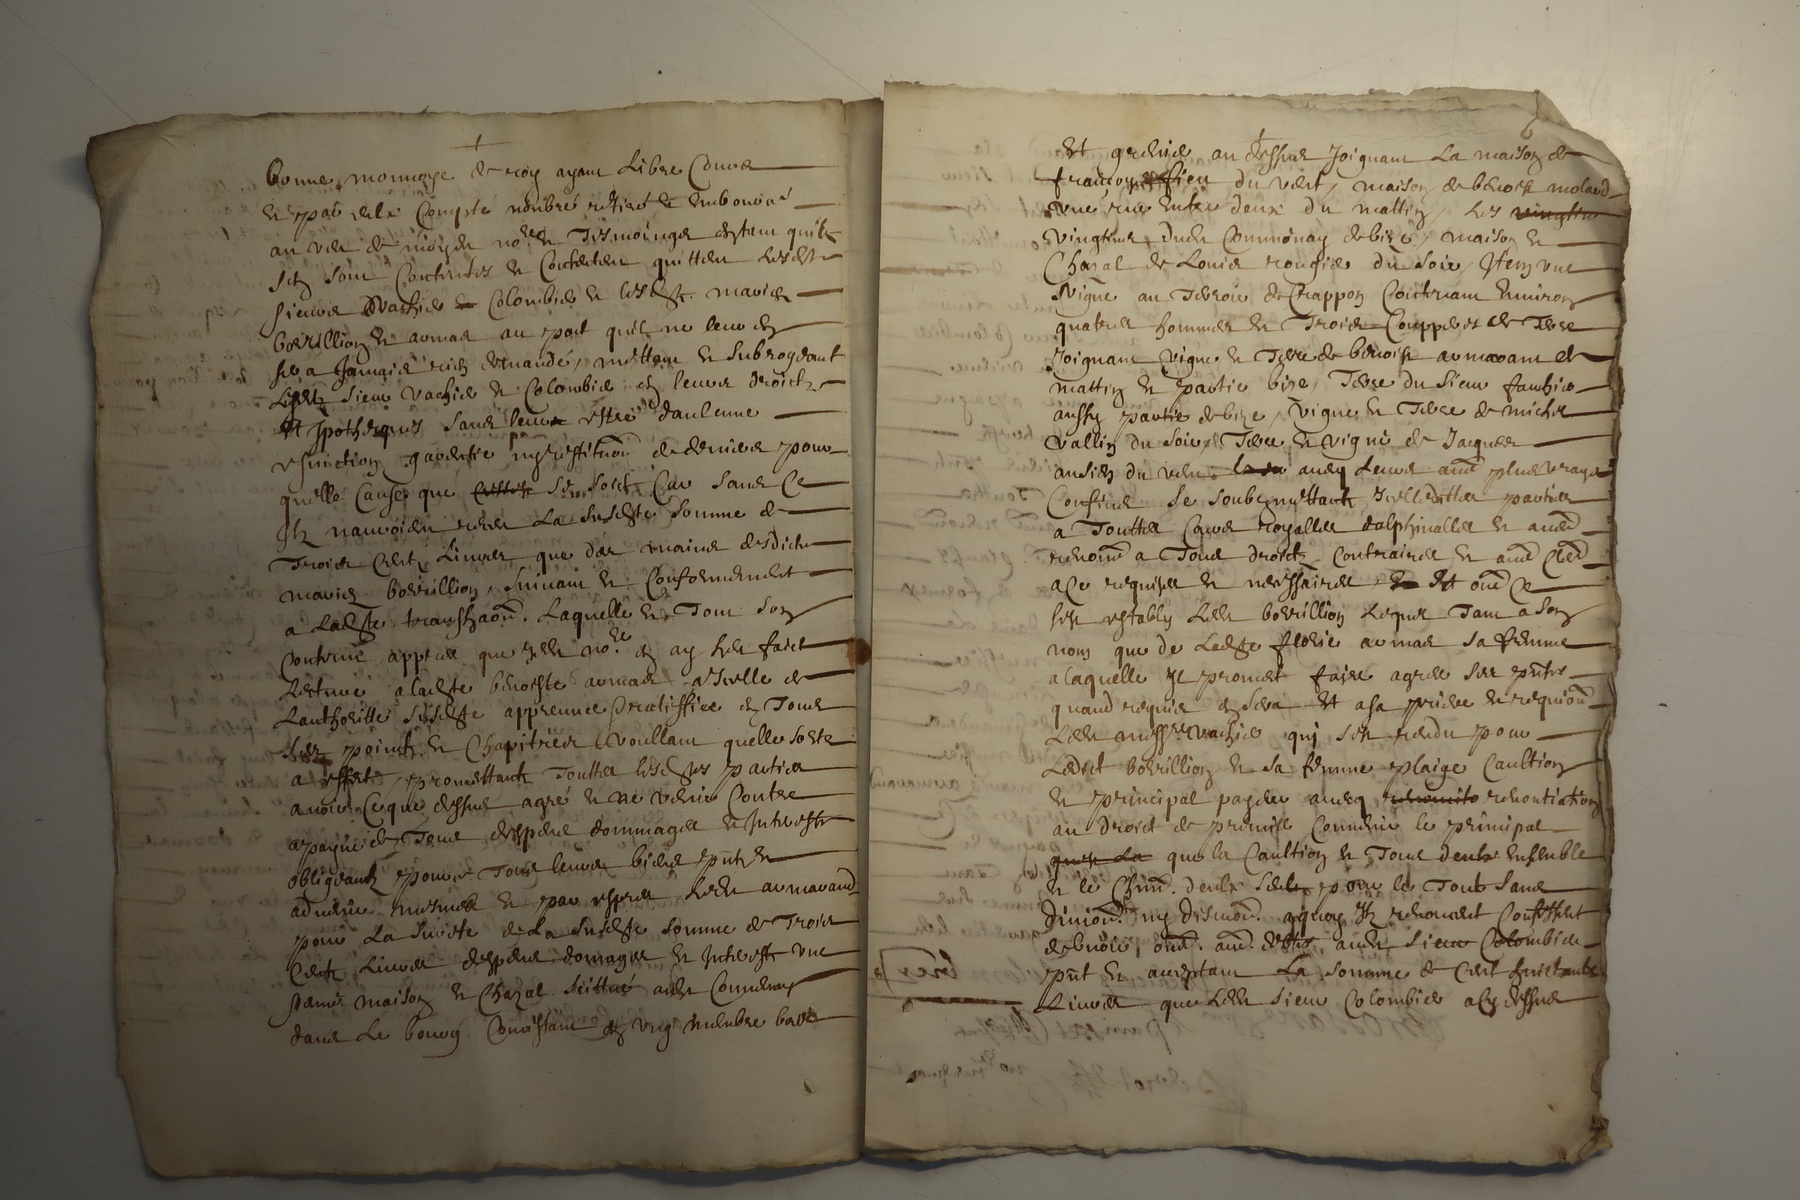 bonne monnoye de roy ayant libre cours
et par eulx compté nombré retiré et emboursé
au veu de moydt no.re et tesmoings estant quils
sen sont contentés et contenten quitten lesdts
sieurs Vachier et Colombier et lesdts mariés
boërillion et armar au part quil ne leur en
sera jamais rien demandé, mettan et subrogeant
lesdts sieur Vachier et Colombier en leurs droictz
et hypotheques sans leur estre daulcune
esviction garentie ny restituõn de deniers pour
quelle cause que ce soict Car sans ce
ilz nauroien receu la susdte somme de
trois cent livres que des mains desdicts
mariés boërillion, suivant et conformement
a ladte transaõn. Laquelle et tout son
contenu appres que je no.re en ay heu faict
lecture a ladte benoiste armar Icelle de
lauthoritté susdte appreuve & ratiffie en tous
ses points et chapitres voullant quelle sorte
a effect, promettant touttes lesdtes parties
avoir ce que dessus agré et ne venir contre
a payne de tous despens dommages et interests
obligeants pour ce tous leurs biens pñts et
advenir mesmes et par expres led. armarand
pour la suitte de la susdte somme de trois
cents livres despens domages et interests une
sienne maison et chazal scittué aud. Communay
dans le bourg consistant en ung membre bas
et grenier au dessus joignant la maison de
françoys du vent, maison de benoist moland
une rue entre deux du mattin, les
vingtins dudt Communay de bize, maison et
chazal de Louis rougier du soir, Item une
vigne au terroir de Chappon contenant environ
quatres hommes et trois couppées de terre
joignant vigne et terre de benoist armarant de
mattin et partie bize, terre du sieur
aussy partie de bize, vigne et terre de michel
Vallin du soir, terre et vigne de Jacques
ansien du vent avecq leurs aues plus vrays
confins se soubzmettants Icellesdittes parties
a touttes cours royalles dalphinalles et aues
renoncé a tous droictz contraires et aues
a ce requises et necessaires et
sest estably led. boërillion lequel tant a son
nom que de ladte florie armar sa femme
a laquelle il promet faire agreer ses pñtes
quand requis en sera et a sa priere et requiõn
led. messre Vachier qui sest rendu pour
ledict boërillion et sa femme plaige caultion
et principal payeur avecq renontiation
au droict de premier convenir le principal
que la caultion et tous deulx ensemble
et le deulx seul pour le tout sans
divisiõn ny discusiõn. aquoy ilz renoncent confessent
debvoir, aud. sieur Colombier
pñt et acceptant la somme de cent huictante
livres que led. sieur Colombier a cy dessus